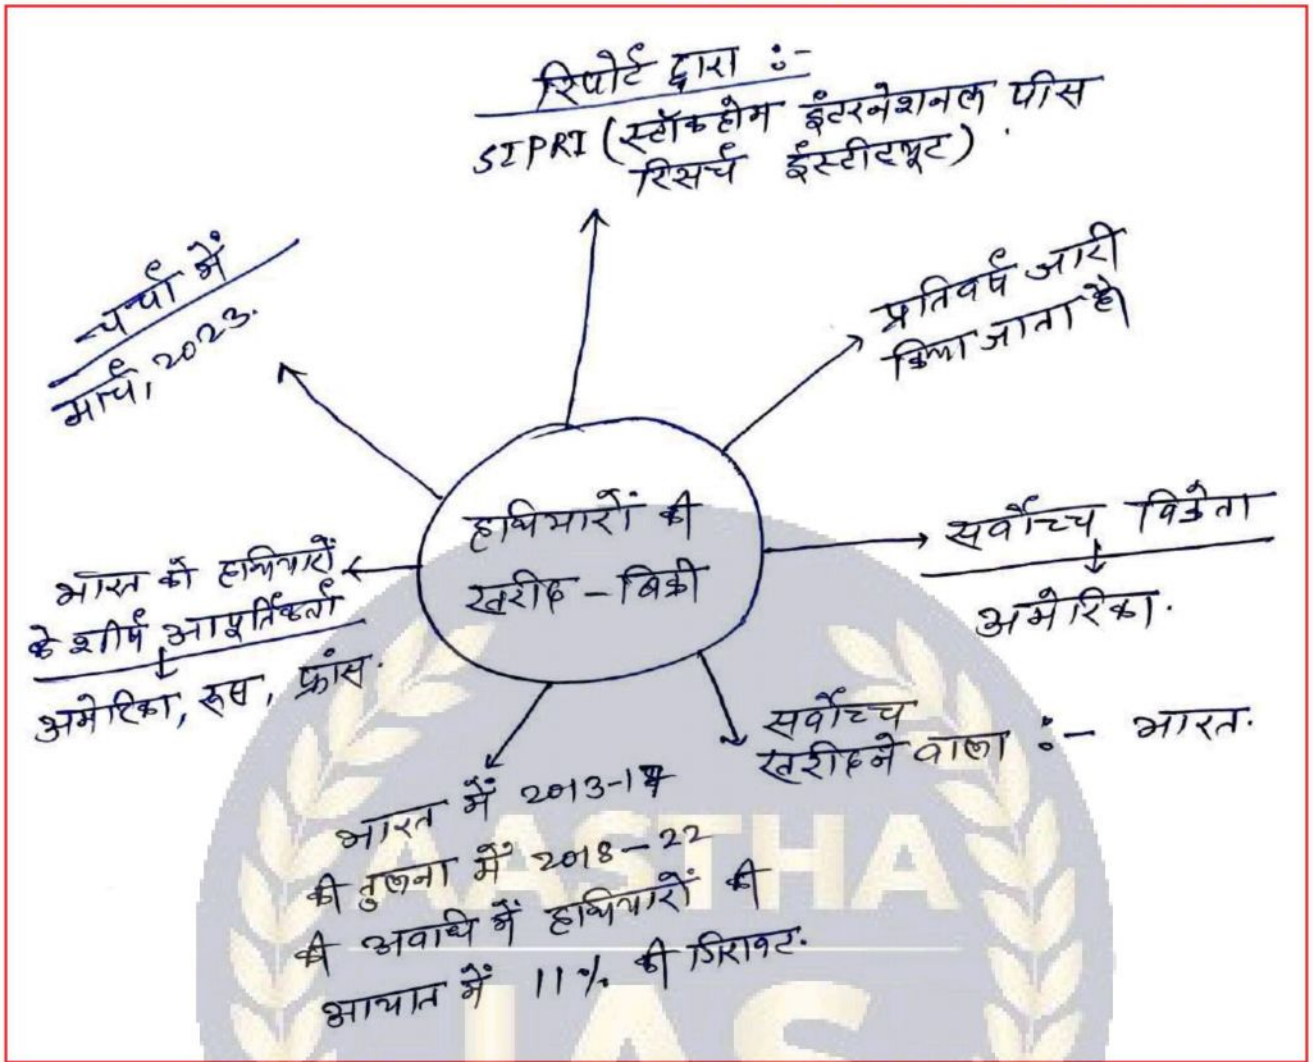 रिपोर्ट द्वारा :-
SIPRI (स्टॉकहोम इंटरनेशनल पीस
रिसर्च इंस्टीट्यूट)
चर्चा में
मार्च, 2023.
प्रतिवर्ष जारी
किया जाता है।
हथियारों की
खरीद - बिक्री
सर्वोच्च विक्रेता
↓
अमेरिका.
भारत को हथियारों
के शीर्ष आपूर्तिकर्ता
↓
अमेरिका, रूस, फ्रांस.
सर्वोच्च
खरीदने वाला :- भारत.
भारत में 2013-17
की तुलना में 2018-22
की अवधि में हथियारों की
आयात में 11% की गिरावट.
AASTHA
IAS